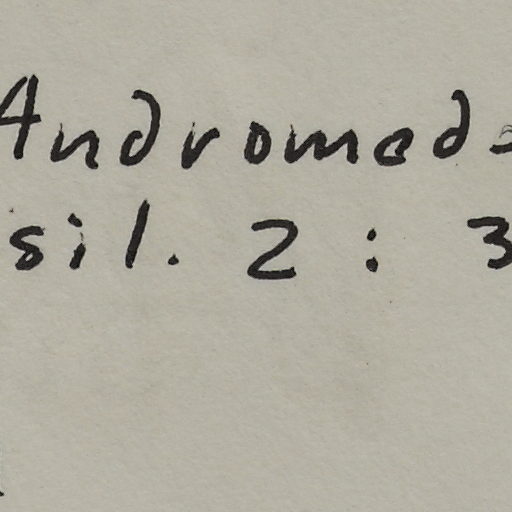 Andromed
sil. 2 : 3